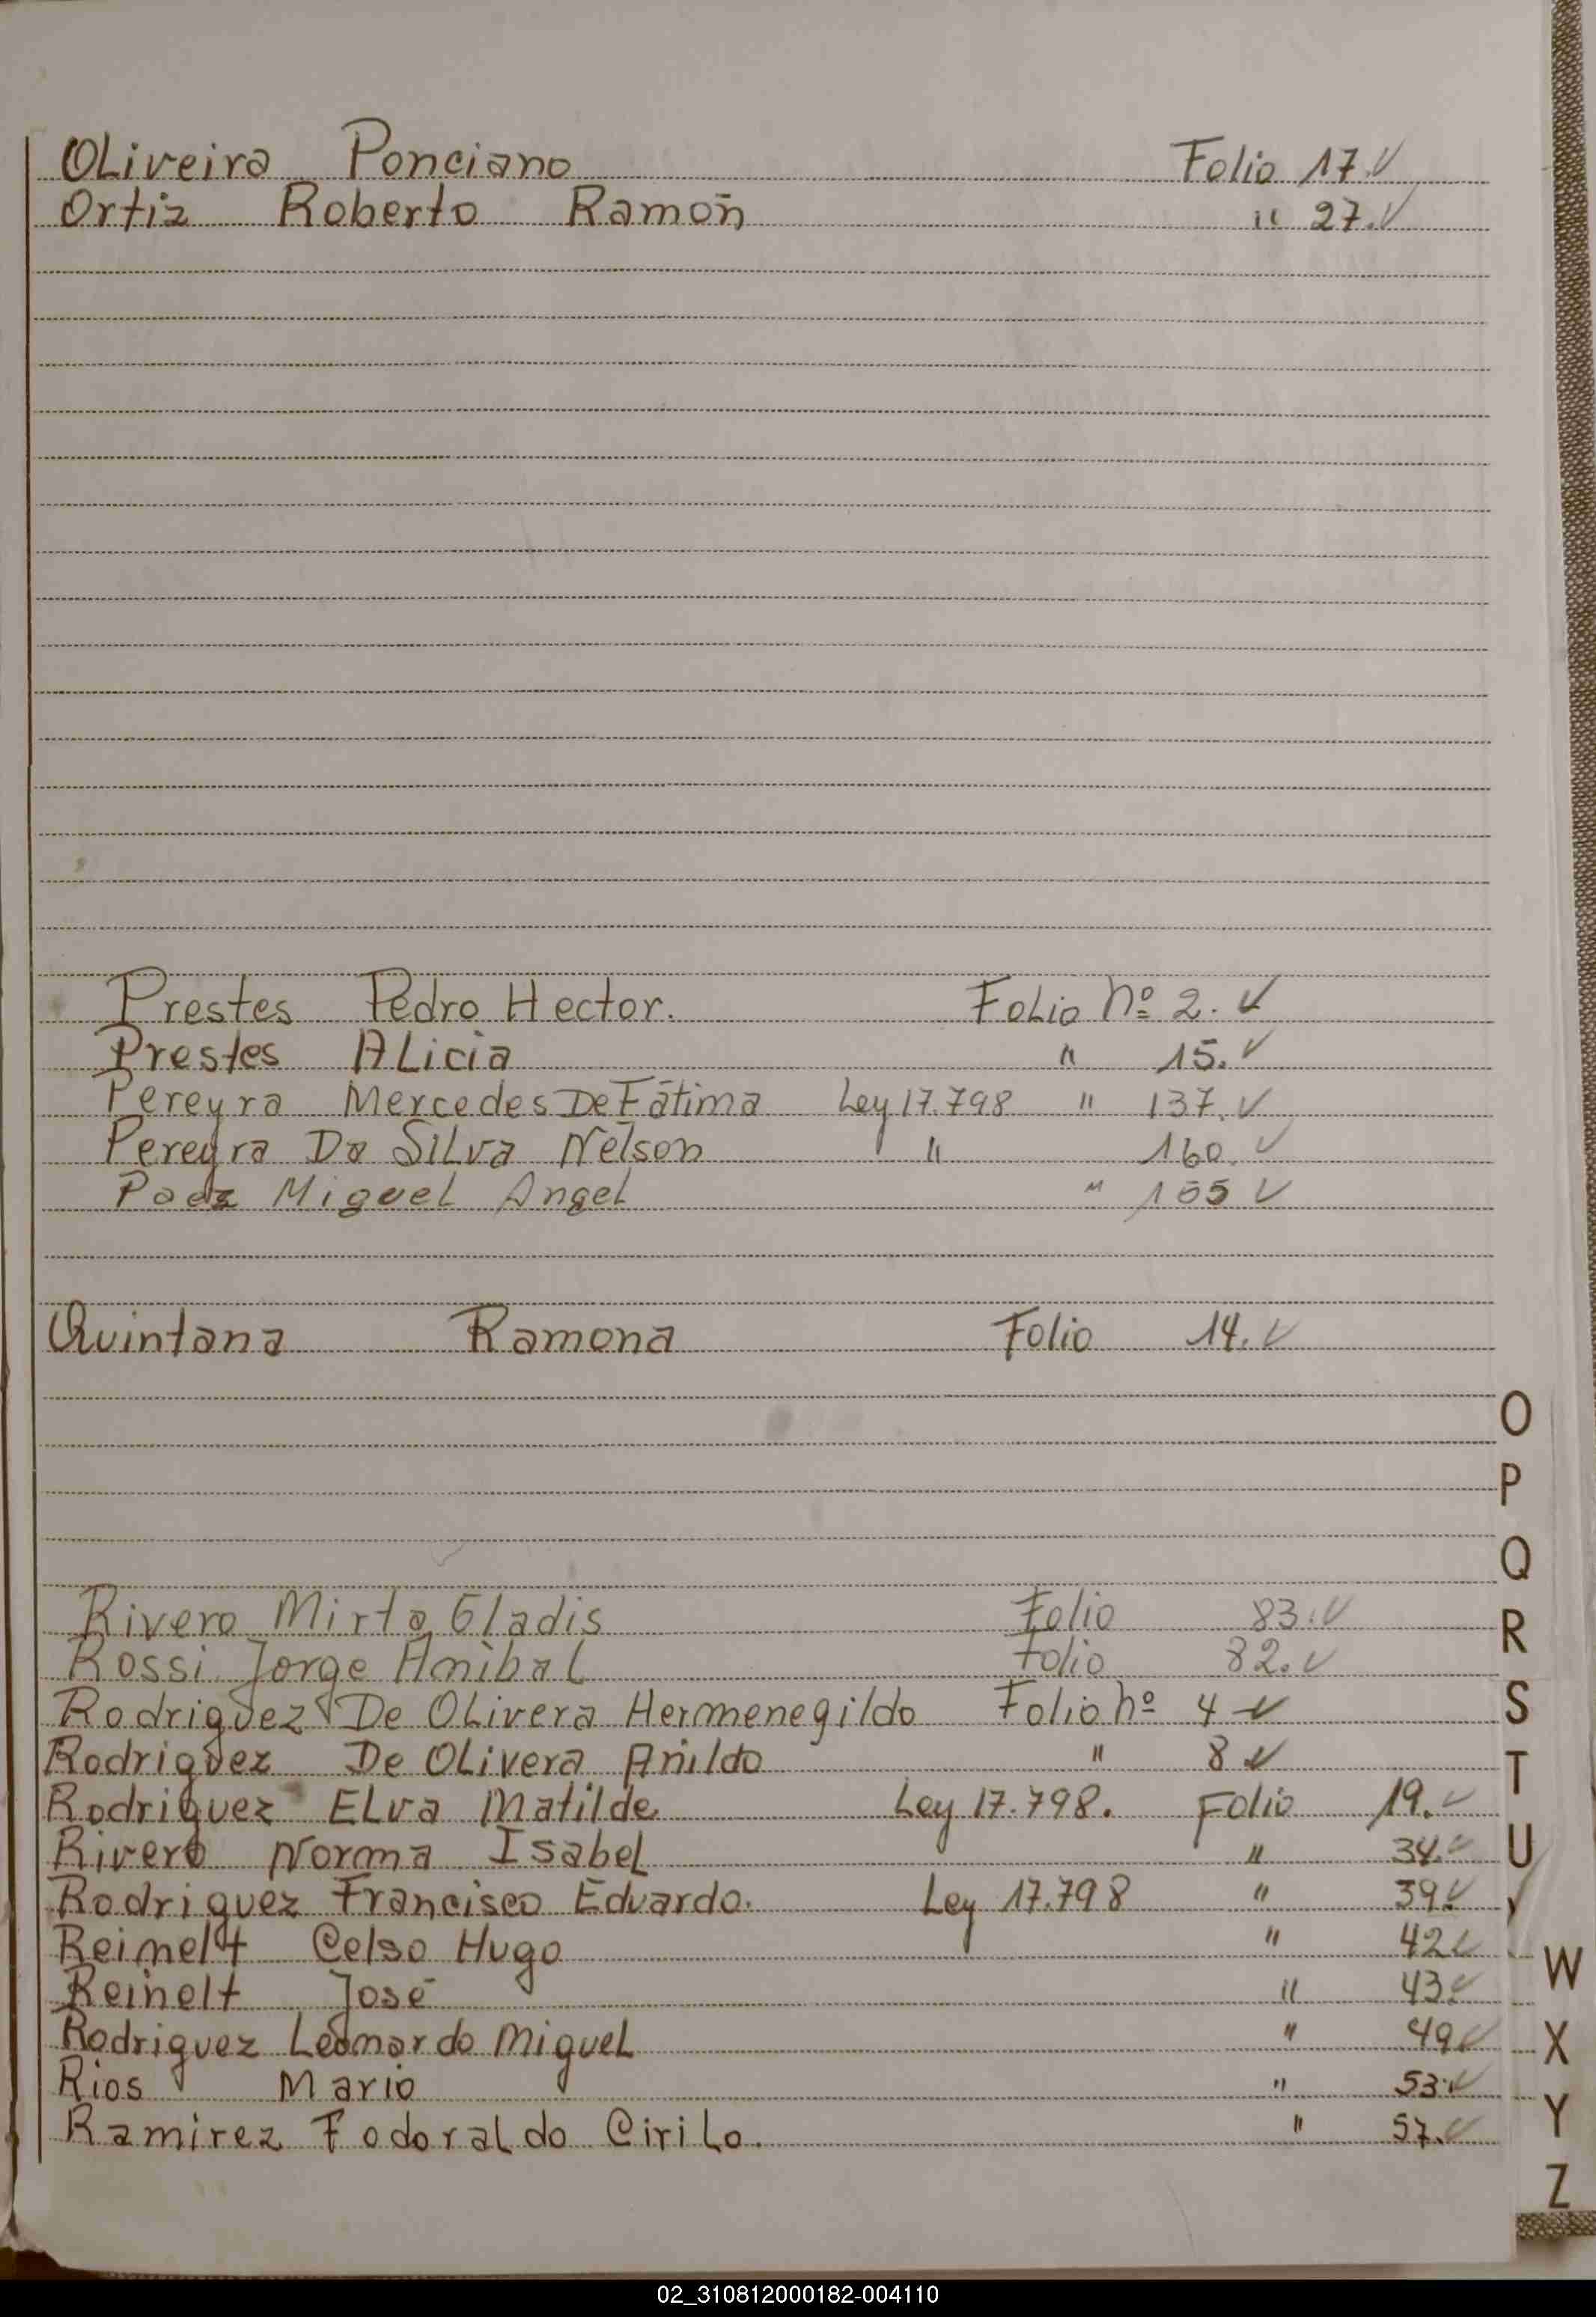 OLiveira Ponciano Folio 17. ✓
Ortiz Roberto Ramón " 27. ✓
Prestes Pedro Hector. FoLio Nº 2. ✓
Prestes ALicia " 15. ✓
Pereyra Mercedes De Fátima Ley 17.798 " 137. ✓
Pereyra Da SiLva Nélson " 160. ✓
Paez MigueL AngeL " ✓
Quintana Ramona Folio 14. ✓
Rivero Mirta Gladis Folio 83. ✓
Rossi Jorge AnibaL Folio 82. ✓
Rodriguez De OLivera Hermenegildo Folio Nº 4 ✓
Rodriguez De OLivera " 8 ✓
Rodriguez ELva Matilde Ley 17.798. Folio 19. ✓
Rivero Norma IsabeL " 34. ✓
Rodriguez Francisco Eduardo. Ley 17.798 " 39. ✓
Reimelt Celso Hugo " 42 ✓
Reinelt José " 43. ✓
Rodriguez Leonardo MigueL " 49 ✓
Rios Mario " 53. ✓
Ramirez FodoraLdo CiriLo. " 57. ✓
O
P
Q
R
S
T
U
V
W
X
Y
Z
02_310812000182-004110